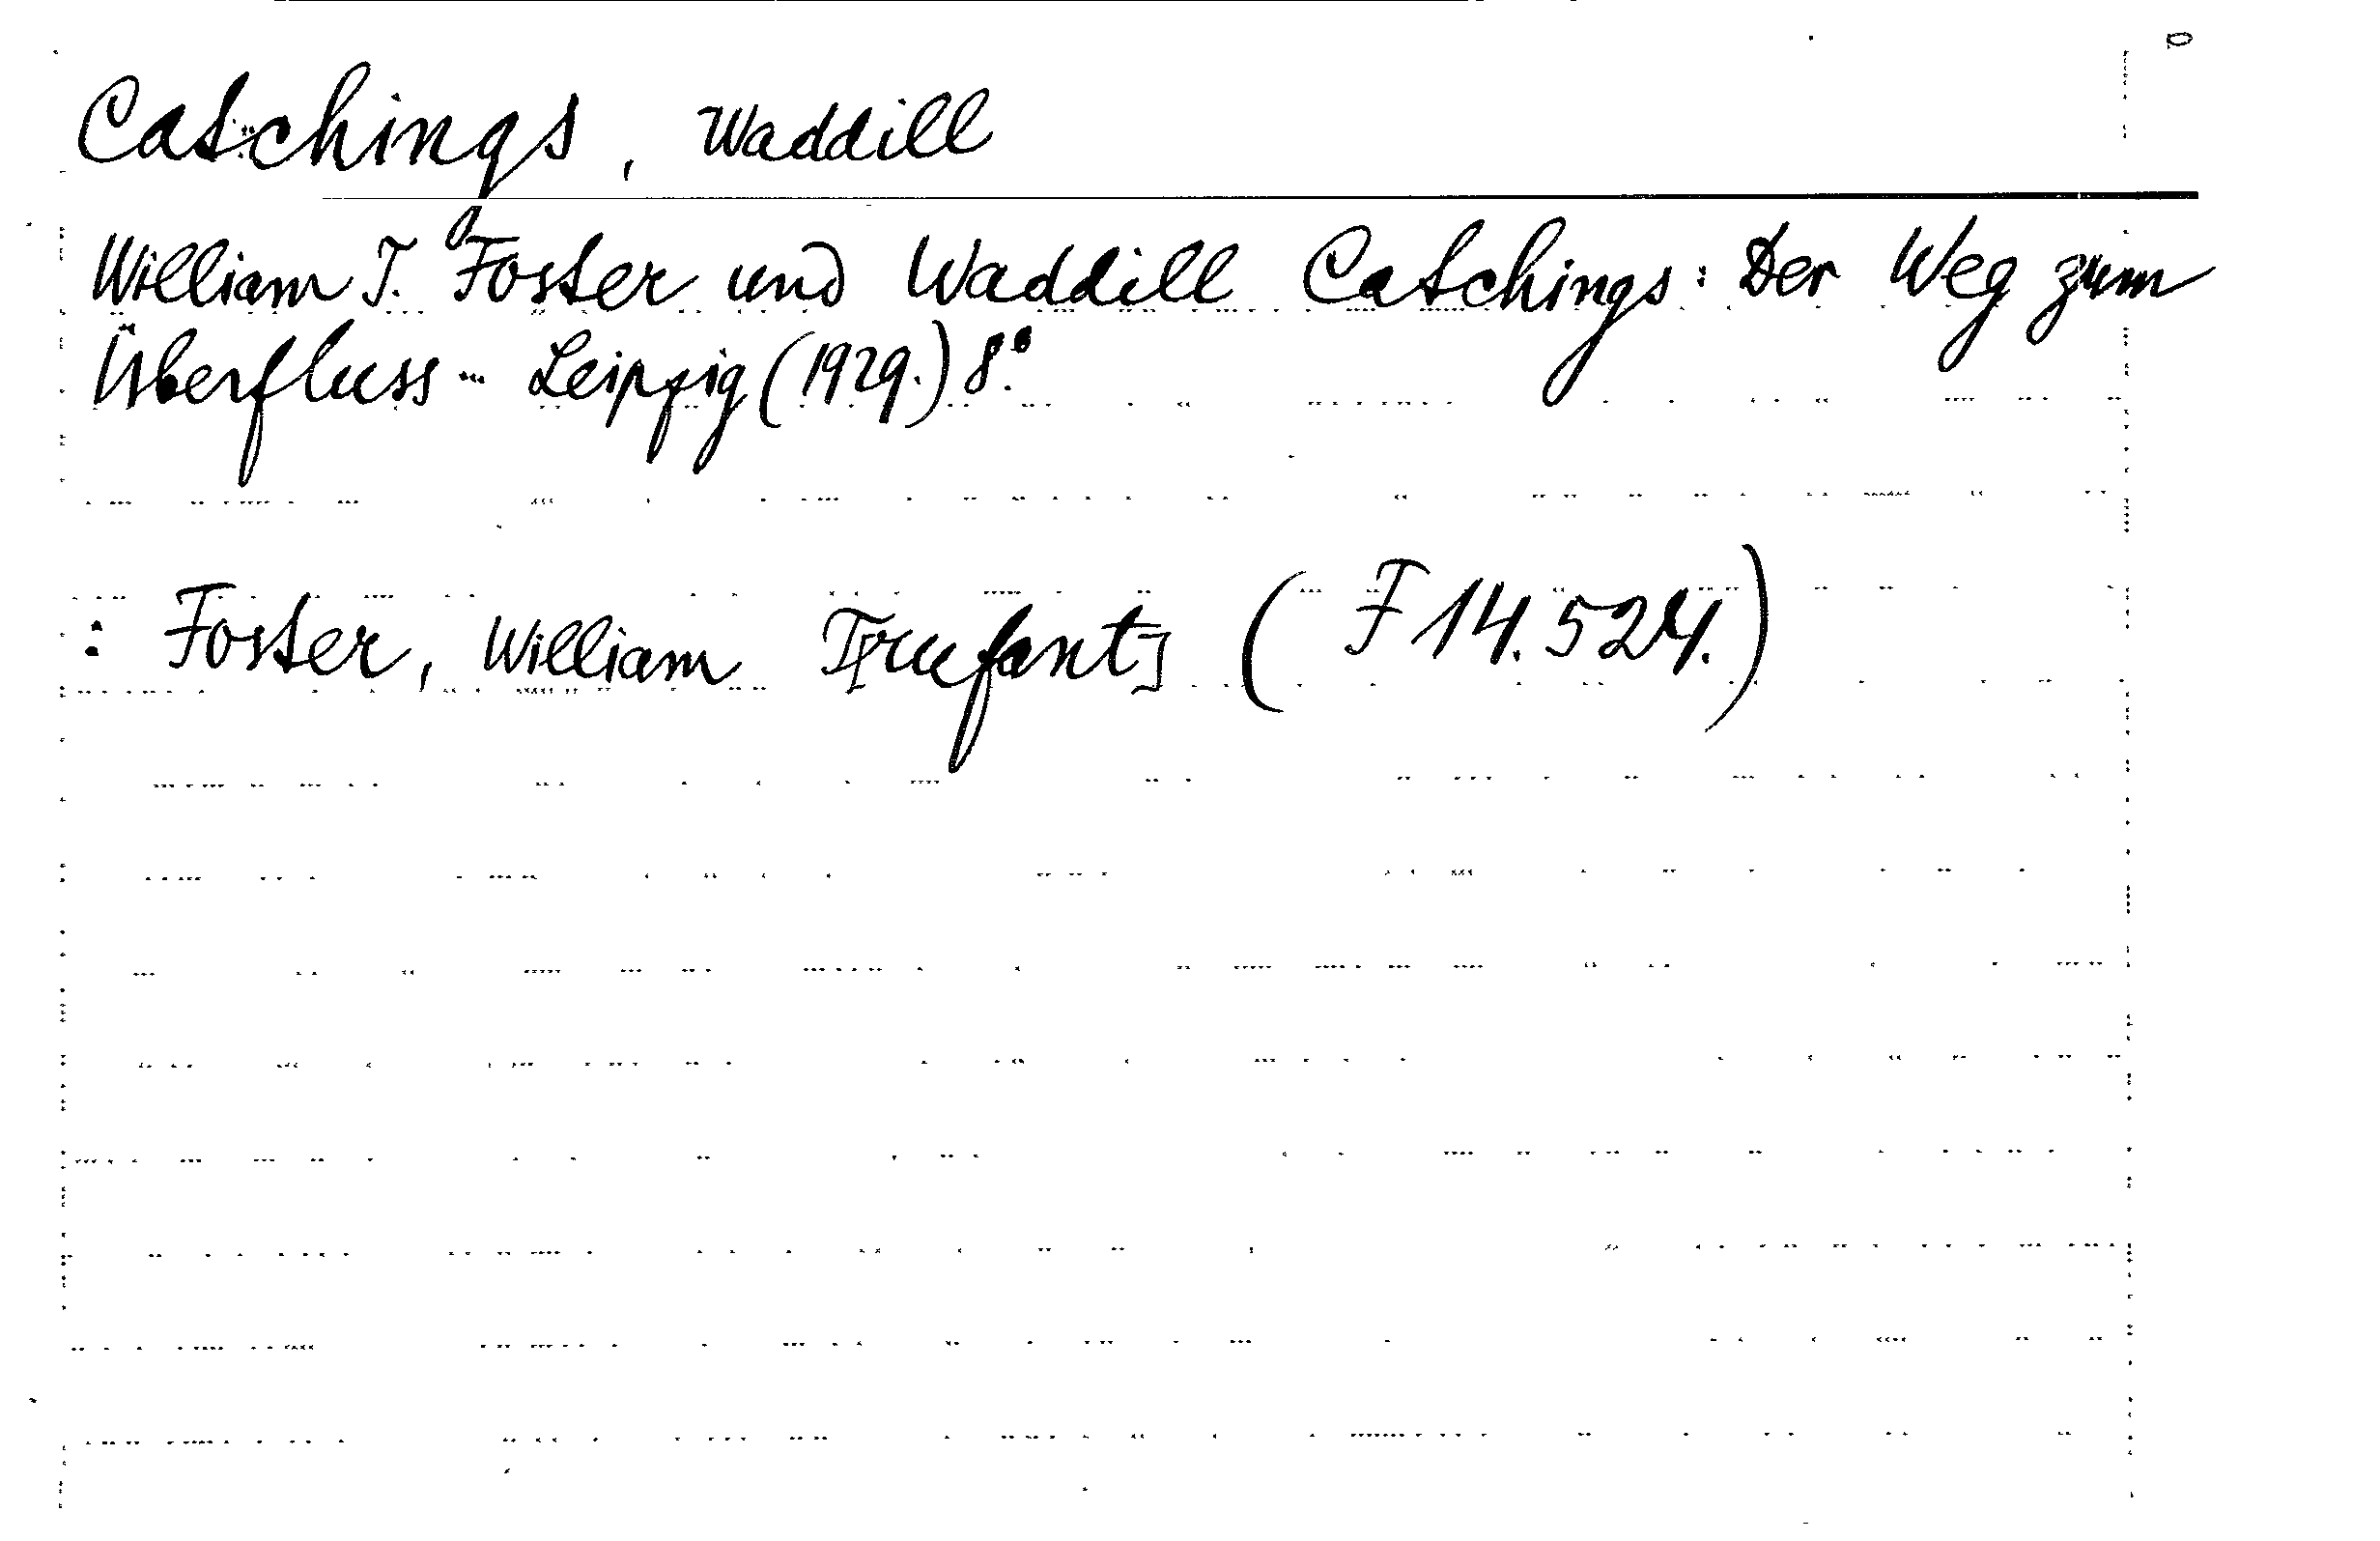 Catchings, Waddill
William T. Foster und Waddill Catchings: Der Weg zum
Überfluss... Leipzig (1929.) 8°.
: Foster, William T[rufant] (F 14.524.)